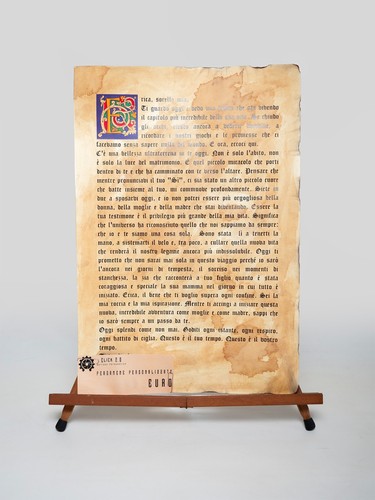 Erica, sorella mia.
Ti guardo oggi e vedo una donna che sta vivendo
il capitolo più incredibile della sua vita. Se chiudo
gli occhi, riesco ancora a vederci bambine, a
ricordare i nostri giochi e le promesse che ci
facevamo senza sapere nulla del mondo. E ora, eccoci qui.
C'è una bellezza ultraterrena in te oggi. Non è solo l'abito, non
è solo la luce del matrimonio. È quel piccolo miracolo che porti
dentro di te e che ha camminato con te verso l'altare. Pensare che
mentre pronunciavi il tuo "Sì", ci sia stato un altro piccolo cuore
che batte insieme al tuo, mi commuove profondamente. Siete in
due a sposarvi oggi, e io non potrei essere più orgogliosa della
donna, della moglie e della madre che stai diventando. Essere la
tua testimone è il privilegio più grande della mia vita. Significa
che l'universo ha riconosciuto quello che noi sappiamo da sempre:
che io e te siamo una cosa sola. Sono stata lì a tenerti la
mano, a sistemarti il velo e, tra poco, a cullare quella nuova vita
che renderà il nostro legame ancora più indissolubile. Oggi ti
prometto che non sarai mai sola in questo viaggio perché io sarò
l'ancora nei giorni di tempesta, il sorriso nei momenti di
stanchezza, la zia che racconterà a tuo figlio quanto è stata
coraggiosa e speciale la sua mamma nel giorno in cui tutto è
iniziato. Erica, il bene che ti voglio supera ogni confine. Sei la
mia roccia e la mia ispirazione. Mentre ti accingi a iniziare questa
nuova, incredibile avventura come moglie e come madre, sappi che
io sarò sempre a un passo da te.
Oggi splendi come non mai. Goditi ogni istante, ogni respiro,
ogni battito di ciglia. Questo è il tuo tempo. Questo è il vostro
tempo.
CLICK 2.0
PERGAMENE PERSONALIZZATE
EURO